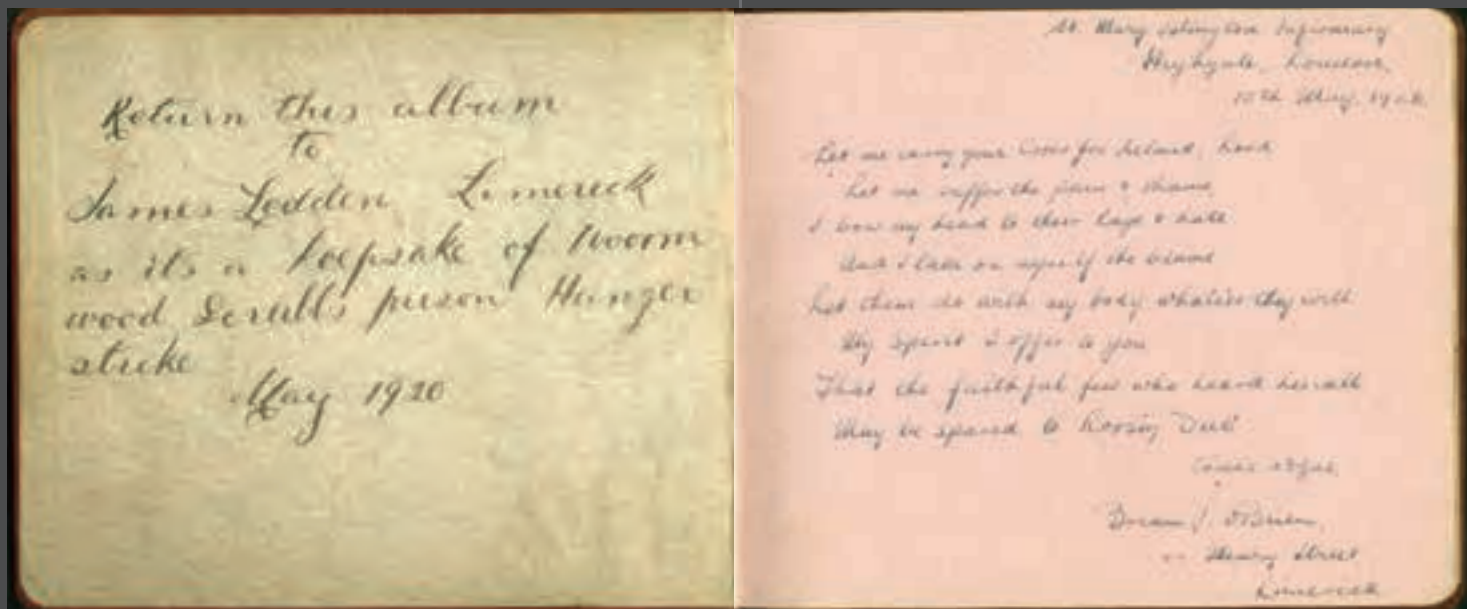 Return this album
to
James Ledden Limerick
as its a keepsake of Woorm
wood Scrubbs prison Hunger
strike
May 1920
St. Mary Islington Infirmary
Highgate, London,
10th May, 1920
Let me carry your Cross for Ireland, Lord
Let me suffer the pain & shame
I bow my head to their rage & hate
And I take on myself the blame
Let them do with my body whate'er they will
My spirit I offer to you
That the faithful few who heard her call
May be spared to Roisin Dub
O'Brien,
Henry Street
Limerick